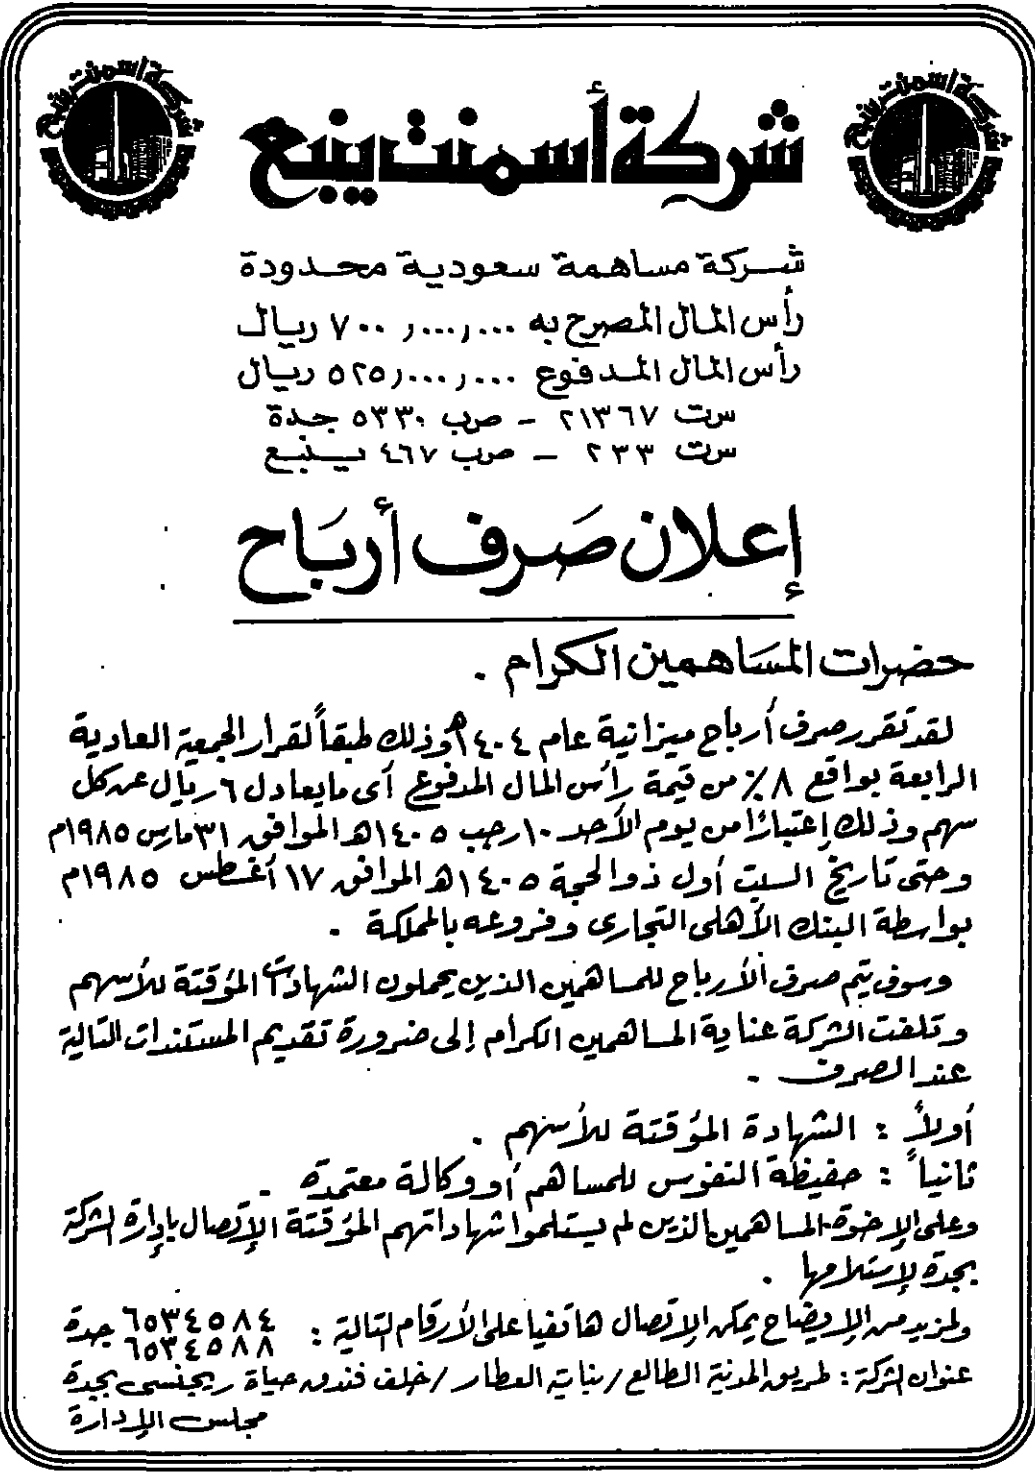 شركة أسمنت ينبع
شركة أسمنت ينبع
شركة أسمنت ينبع
شركة مساهمة سعودية محدودة
رأس المال المصرح به ٧٠٠٫٠٠٠٫٠٠٠ ريال
رأس المال المدفوع ٥٢٥٫٠٠٠٫٠٠٠ ريال
س ت ٢١٣٦٧ - ص ب ٥٣٣٠ جدة
س ت ٢٣٣ - ص ب ٤٦٧ ينبع
إعلان صَرف أربَاح
حضرات المسَاهمين الكرام .
لقد تقرر صرف أرباح ميزانية عام ١٤٠٤هـ وذلك طبقاً لقرار الجمعية العادية
الرابعة بواقع ٨٪ من قيمة رأس المال المدفوع أى مايعادل ٦ ريال عن كل
سهم وذلك إعتبارًا من يوم الأحد ١٠ رجب ١٤٠٥هـ الموافق ٣١ مارس ١٩٨٥م
وحتى تاريخ السبت أول ذو الحجة ١٤٠٥هـ الموافق ١٧ أغسطس ١٩٨٥م
بواسطة البنك الأهلى التجارى وفروعه بالمملكة .
وسوف يتم صرف الأرباح للمساهمين الذين يحملون الشهادات المؤقتة للأسهم
وتلفت الشركة عناية المساهمين الكرام إلى ضرورة تقديم المستندات التالية
عند الصرف .
أولاً : الشهادة المؤقتة للأسهم .
ثانياً : حفيظة النفوس للمساهم أو وكالة معتمدة .
وعلى الإخوة المساهمين الذين لم يستلموا شهاداتهم المؤقتة الإتصال بإدارة الشركة
بجدة لإستلامها .
ولمزيد من الإيضاح يمكن الإتصال هاتفيا على الأرقام التالية : ٦٥٣٤٥٨٤
٦٥٣٤٥٨٨ جدة
عنوان الشركة : طريق المدينة الطالع / بناية العطار / خلف فندق حياة ريجنسى بجدة
مجلس الإدارة